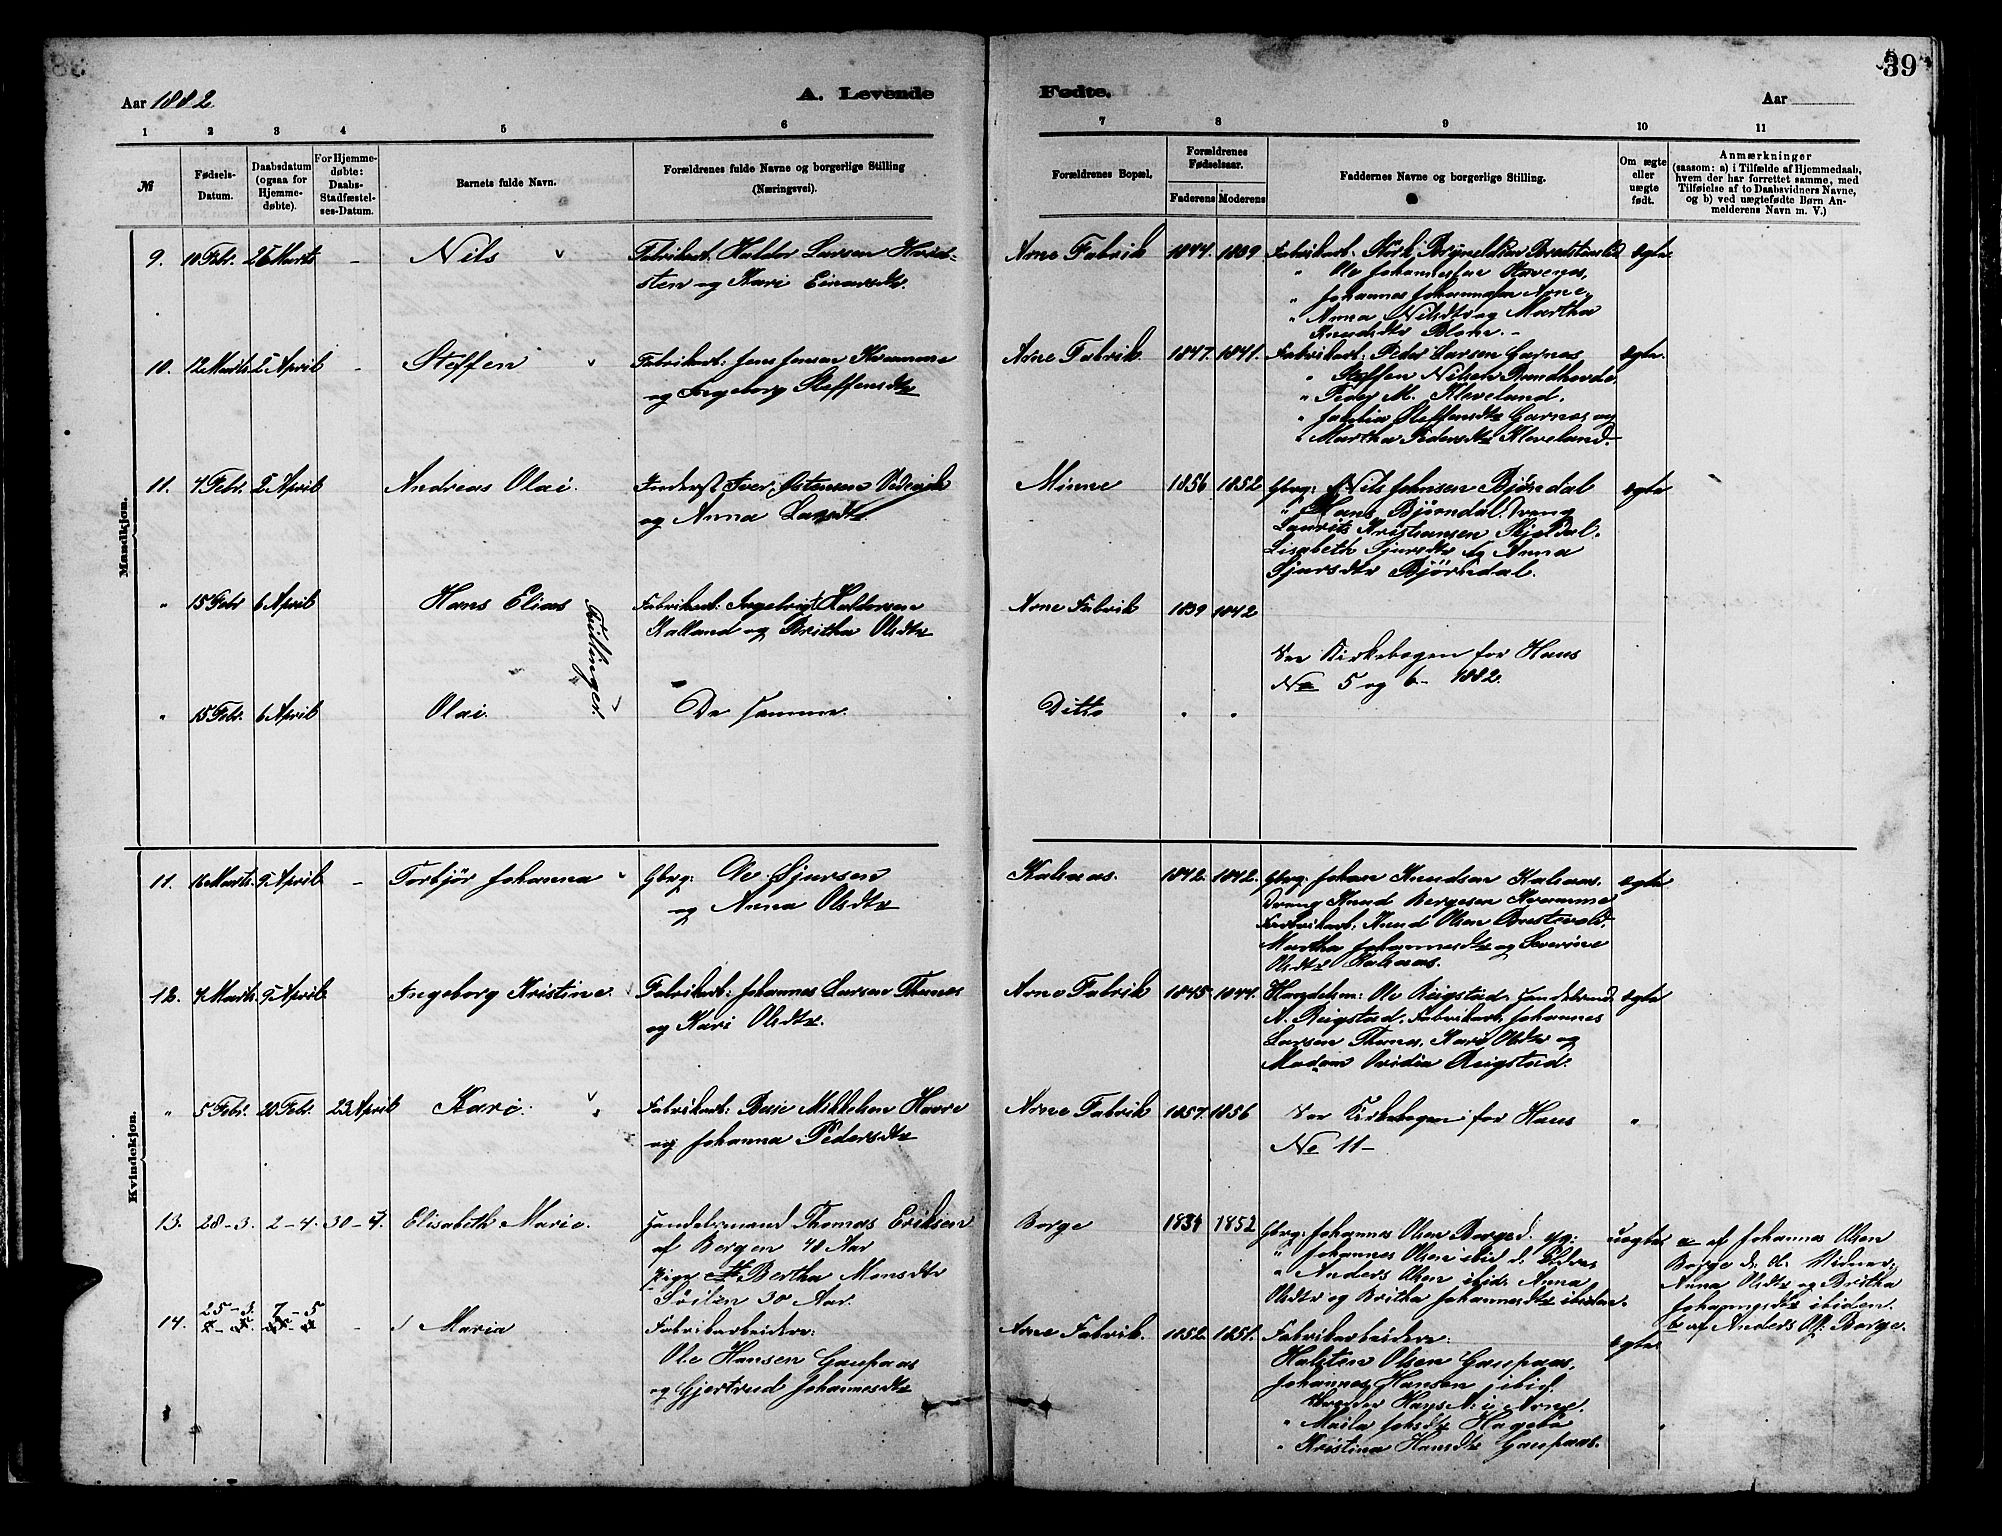 39
Aar 1882
A. Levende
Fødte.
Aar
1 2 3 4 5 6 7 8 9 10 11
№
Fødsels-Datum.
Daabsdatum (ogsaa for Hjemme-døbte).
For Hjemme-døbte: Daabs-Stadfæstel-ses-Datum.
Barnets fulde Navn.
Forældrenes fulde Navne og borgerlige Stilling (Næringsvei).
Forældrenes Bopæl.
Forældrenes Fødselsaar.
Faderens Moderens
Faddernes Navne og borgerlige Stilling.
Om ægte eller uægte født.
Anmærkninger
(saasom: a) i Tilfælde af Hjemmedaab,
hvem der har forrettet samme, med
Tilføielse af to Daabsvidners Navne,
og b) ved uægtefødte Børn An-
melderens Navn m. V.)
Mandkjøn.
9. 10 Febr. 26 Marts - Nils
Fabrikarb. Haldor Larsen
og Kari Einarsdtr.
Arne Fabrik 1844. 1839
Fabrikarb. Brynildsen
" Ole Johannesen
" Johannes Johannesen Arne,
" Anna Nilsdtr og Martha
Knudsdtr Blom. -
ægte
10. 12 Marts 2 April - Steffen
Fabrikarb: Jens Jensen Kvamme
og Ingeborg Steffensdtr
Arne Fabrik 1847. 1841.
Fabrikarb: Peder Larsen Garnæs
" Steffen Nilsen
" Peder M. Kleveland.
" Steffensdtr Garnæs og
" Martha Pedersdtr Kleveland.
ægte.
11. 4 Febr. 2 April Andreas Olai.
Inderst Iver
og Anna Larsdtr
Minne 1856 1852
Gbrg: Nils Johnsen Bjørndal
" Hans Bjørndal, Dreng
Laurits Kristiansen Skjeldal.
Lisabeth Sjursdtr og Anna
Sjursdtr Bjørndal.
ægte
" 15 Febr 6 April Hans Elias
Tvillinger
Fabrikarb: Ingebrigt Haldorsen
Kalland og Britha Olsdtr
Arne Fabrik 1839 1842
See Kirkebogen for Haus
No 5 og 6 - 1882.
" 15 Febr. 6 April Olai.
De samme.
Ditto " "
Kvindekjøn.
11. 16 Marts 9 April - Torbjør Johanna
Gbrg: Ole Sjursen
og Anna Olsdtr
Kalsaas. 1842. 1842.
Gbrg: Johan Knudsen Kalsaas.
Dreng Knud Børgesen Kvamme
Fabrikarb: Knud Olsen
Martha Johannesdtr og Severine
Olsdtr Kalsaas.
ægte
12. 7 Marts 9 April - Ingeborg Kristine.
Fabrikarb: Johannes Larsen Thunes
og Kari Olsdtr.
Arne Fabrik 1845 1844.
Handelsm: Ole Reigstad. Handelsmd
A. Reigstad. Fabrikarb. Johannes
Larsen Thunes, Kari Olsdtr og
Madam Ovidia Reigstad.
ægte
" 5 Febr. 20 Febr. 23 April Kari.
Fabrikarb: Mikkelsen Havre
og Johanna Pedersdtr
Arne Fabrik 1857. 1856
See Kirkebogen for Haus
No 11 -
"
13. 28-3. 2-4. 30-4. Elisabeth Marie.
Handelsmand Thomas Eriksen
af Bergen 48 Aar
Pige Bertha Monsdtr
Søilen 30 Aar.
Borge 1834 1852
Gbrg: Johannes Olsen Borge d. yg:
" Johannes Olsen ibid d.
" Anders Olsen ibid. Anna
Olsdtr og Britha Johannesdtr ibiden.
uægte
a af Johannes Olsen
Borge d. Æ. Vidner:
Anna Olsdtr og Britha
Johannesdtr ibiden.
b af Anders Ols: Borge.
14. 25-3. 7-5 - Maria
Fabrikarbeider:
Ole Hansen Gaupaas
og Gjertrud Johannesdtr
Arne Fabrik. 1852. 1851.
Fabrikarbeidere:
Halsten Olsen Gaupaas,
Johannes Hansen ibid.
Hans N. i Arne.
" Johsdtr Hagebø
" Kristina Hansdtr Gaupaas.
ægte